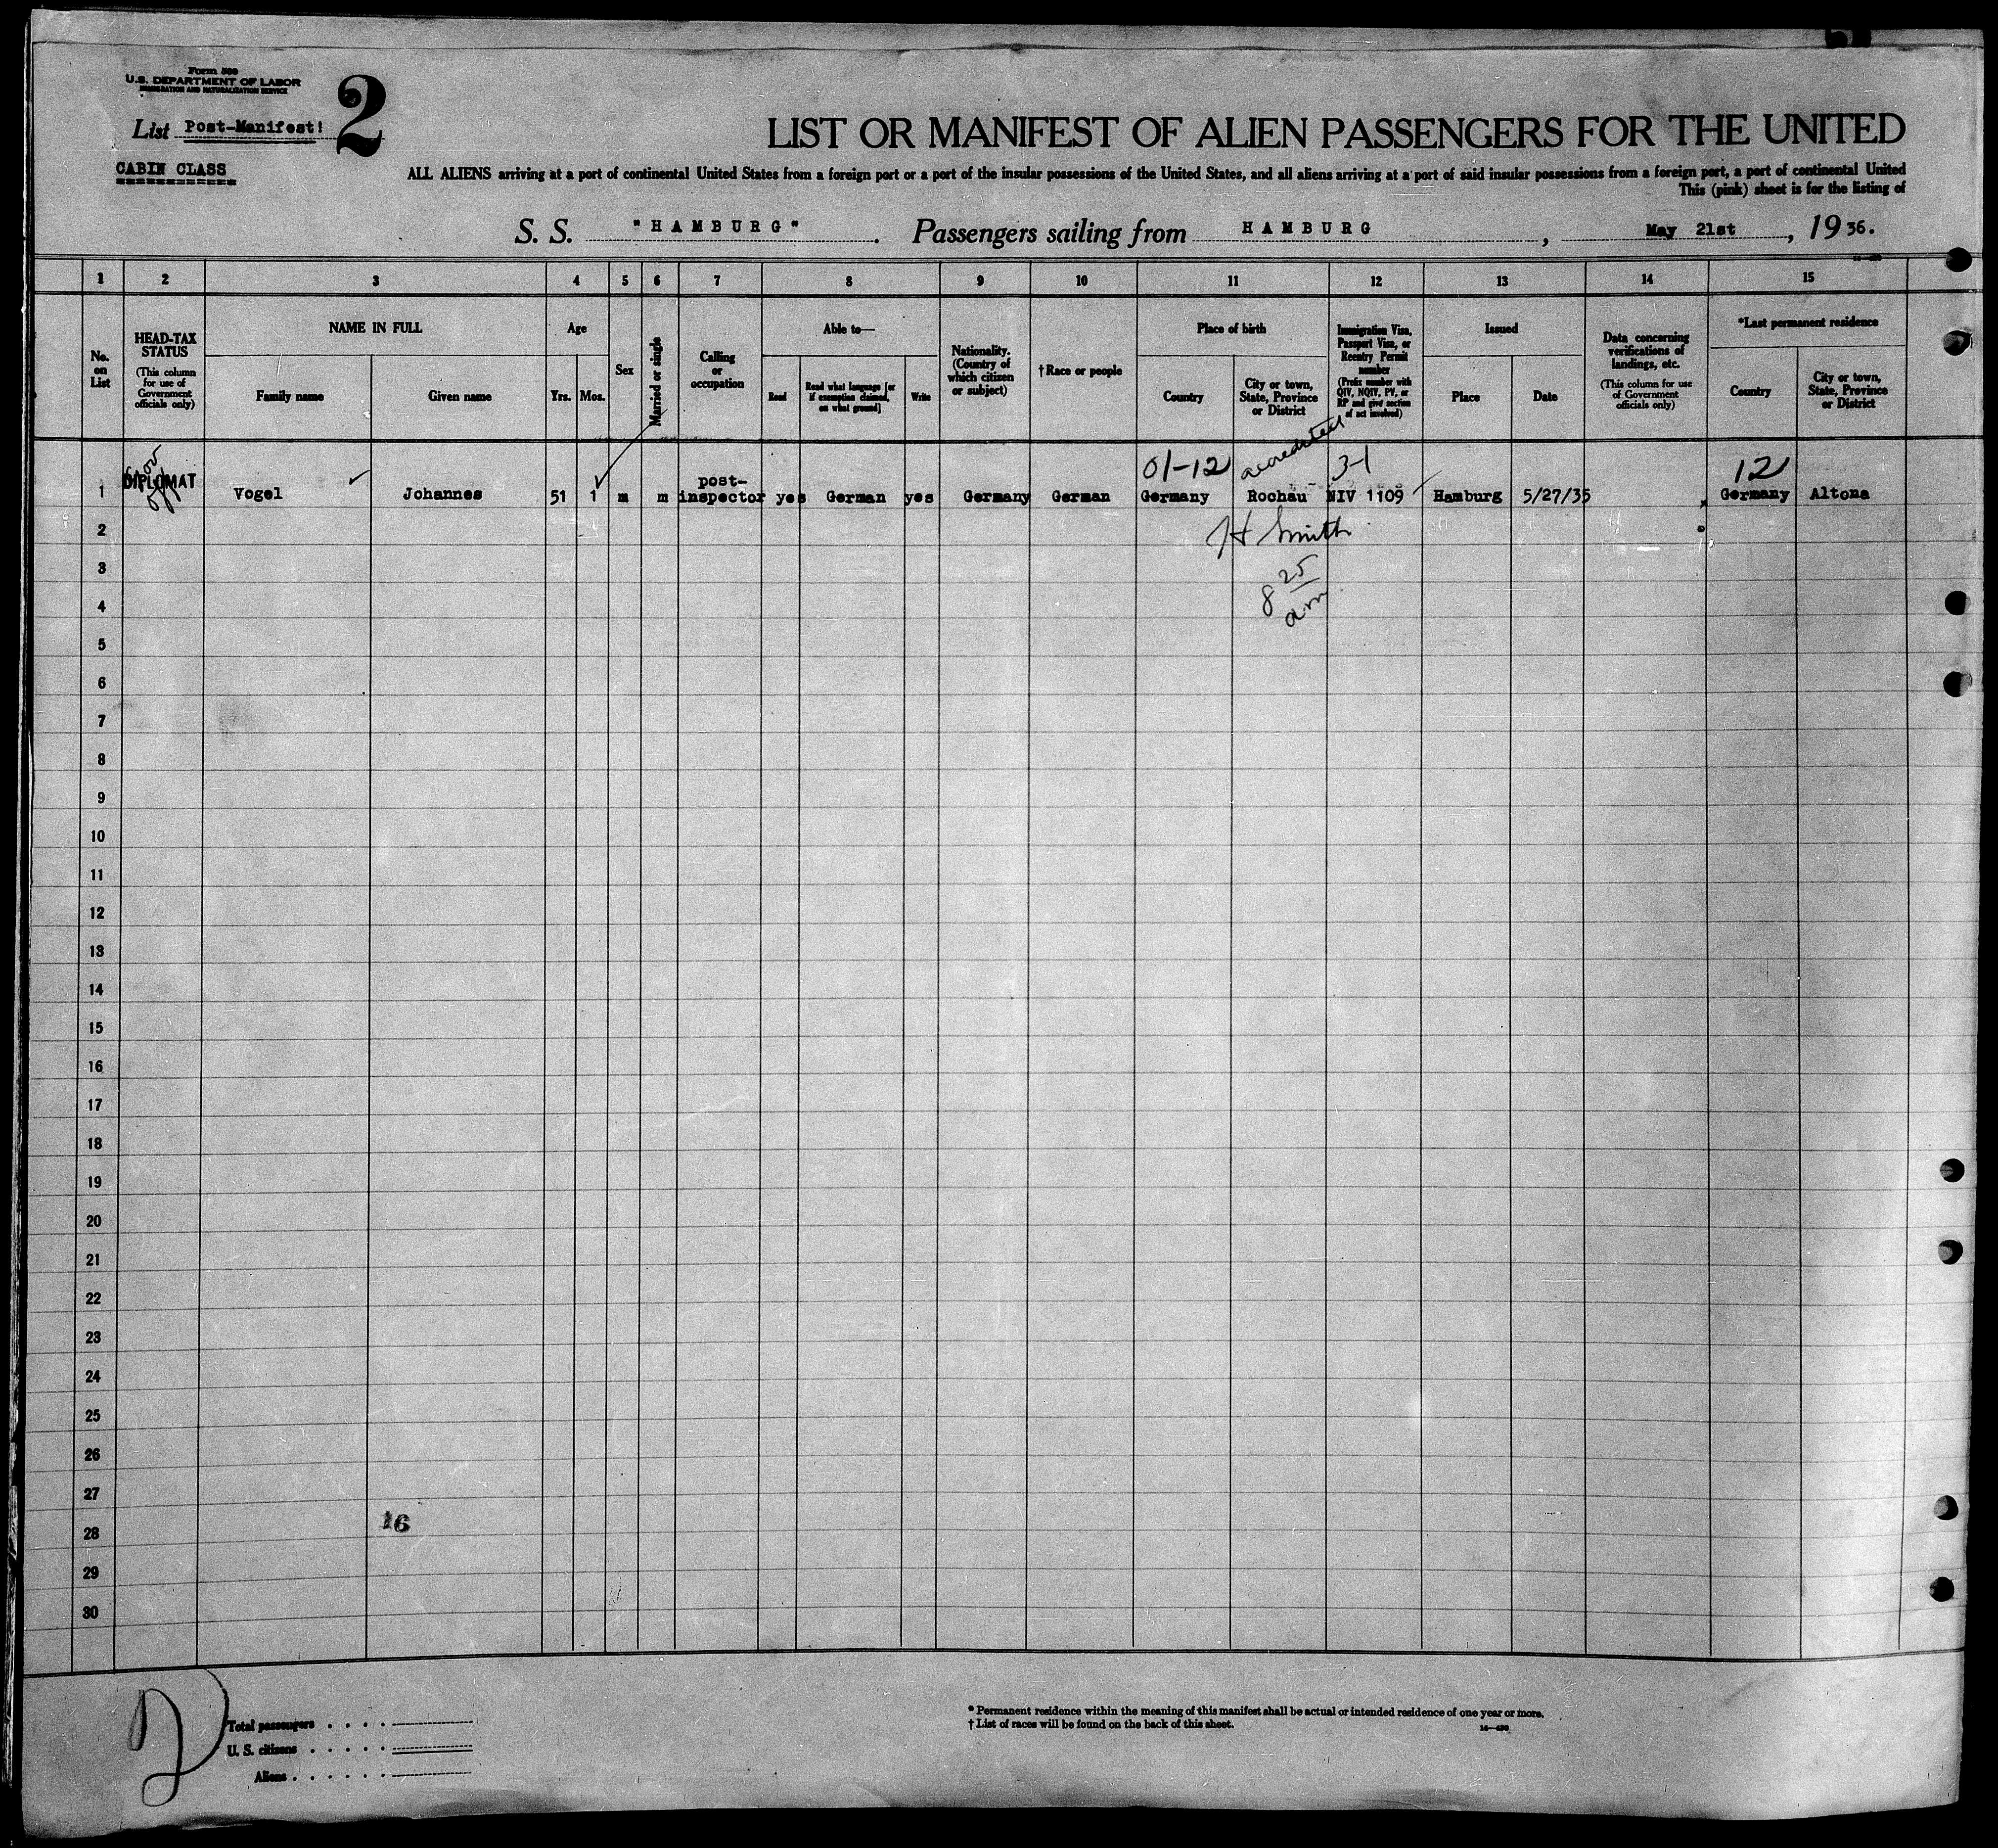 Form 500
U.S. DEPARTMENT OF LABOR
IMMIGRATION AND NATURALIZATION SERVICE
2
List Post-Manifest!
CABIN CLASS
LIST OR MANIFEST OF ALIEN PASSENGERS FOR THE UNITED
ALL ALIENS arriving at a port of continental United States from a foreign port or a port of the insular possessions of the United States, and all aliens arriving at a port of said insular possessions from a foreign port, a port of continental United
This (pink) sheet is for the listing of
S. S. "HAMBURG". Passengers sailing from HAMBURG, May 21st, 1936.
1 2 3 4 5 6 7 8 9 10 11 12 13 14 15
No. on List
HEAD-TAX STATUS
(This column for use of Government officials only)
NAME IN FULL
Family name
Given name
Age
Yrs.
Mos.
Sex
Married or single
Calling or occupation
Able to—
Read
Read what language [or if exemption claimed, on what ground]
Write
Nationality. (Country of which citizen or subject)
†Race or people
Place of birth
Country
City or town, State, Province or District
Immigration Visa, Passport Visa, or Reentry Permit number
(Prefix number with QIV, NQIV, PV, or RP and give section of act involved)
Issued
Place
Date
Data concerning verifications of landings, etc.
(This column for use of Government officials only)
*Last permanent residence
Country
City or town, State, Province or District
01-12 accredited 3-1 12
1 DIPLOMAT Vogel Johannes 51 1 m m post-inspector yes German yes Germany German Germany Rochau NIV 1109 Hamburg 5/27/35 Germany Altona
2 H Smith
3 8 25
4 am
5
6
7
8
9
10
11
12
13
14
15
16
17
18
19
20
21
22
23
24
25
26
27
28 16
29
30
Total passengers
U. S. citizens
Aliens
* Permanent residence within the meaning of this manifest shall be actual or intended residence of one year or more.
† List of races will be found on the back of this sheet.